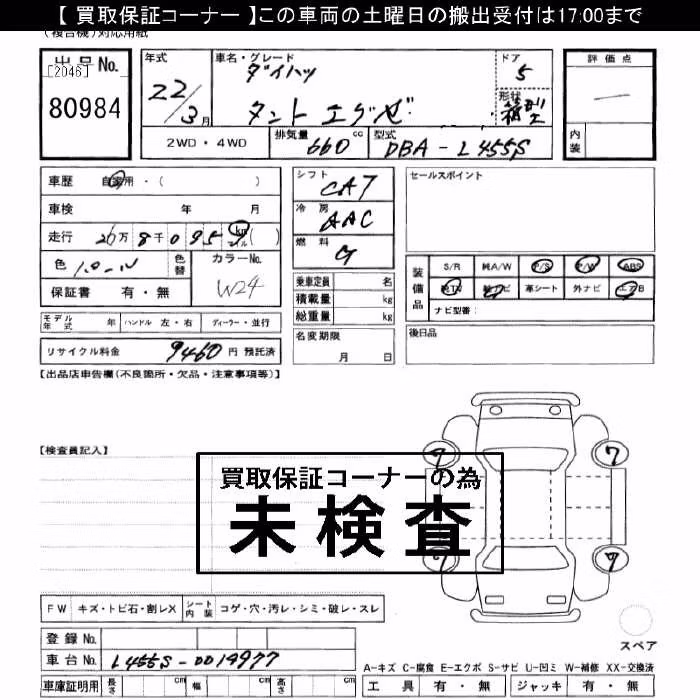 【 買取保証コーナー 】この車両の土曜日の搬出受付は17:00まで
(複合機)対応用紙
出品No.
[2046]
80984
年式
22/3月
車名・グレード
ダイハツ
タント エグゼ
ドア
5
形状
箱型
評価点
内装
2WD・4WD
排気量 660 cc
型式 DBA-L455S
車歴 自家用・( )
車検 年 月
走行 26万8千095 km マイル ( )
色 パール
色替
カラーNo.
W24
保証書 有・無
シフト
CAT
冷房
AAC
燃料
G
乗車定員 名
積載量 kg
総重量 kg
名変期限
月 日
セールスポイント
装備品
S/R 純A/W P/S P/W ABS
純TV 純ナビ 革シート 外ナビ エアB
ナビ型番:
後日品
モデル年式 年 ハンドル 左・右 ディーラー・並行
リサイクル料金 9460 円 預託済
【出品店申告欄(不良箇所・欠品・注意事項等)】
【検査員記入】
買取保証コーナーの為
未検査
7
7
7
7
FW キズ・トビ石・割レX
シート内装 コゲ・穴・汚レ・シミ・破レ・スレ
スペア
登録No.
車台No. L455S-0014977
A-キズ C-腐食 E-エクボ S-サビ U-凹ミ W-補修 XX-交換済
車庫証明用 長さ cm 幅 cm 高さ cm
工具 有・無 ジャッキ 有・無